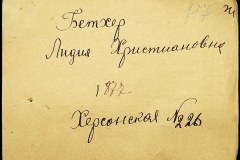 Ж
Бетхер
Лидия Христиановна
1877
Херсонская №226